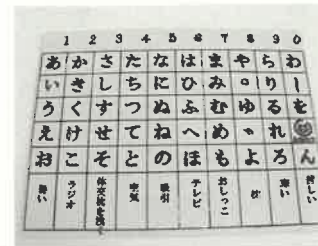 1 2 3 4 5 6 7 8 9 0
あ か さ た な は ま や ら わ
い き し ち に ひ み ° り ー
う く す つ ぬ ふ む ゆ る を
え け せ て ね へ め ° れ
お こ そ と の ほ も よ ろ ん
ラジオ 空気 吸引 テレビ おしっこ 枕 寒い 苦しい